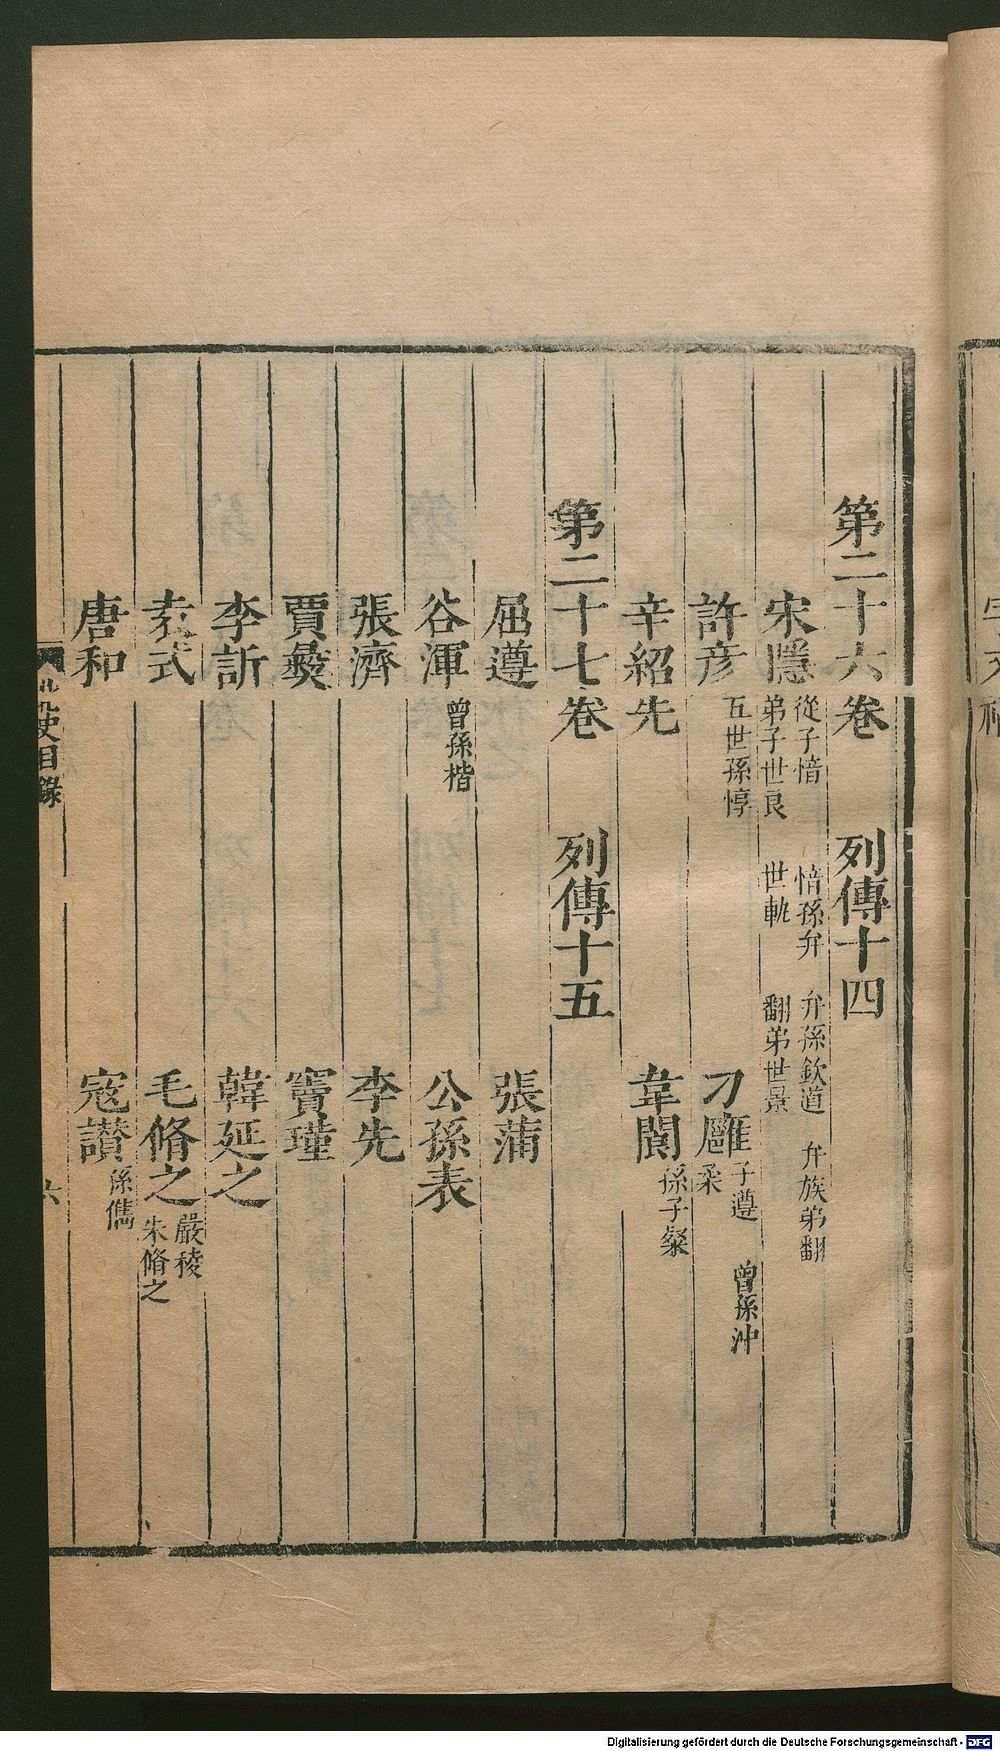 第二十六卷 列傳十四
宋隱 從子愔 愔孫弁 弁孫欽道 弁族弟翻
弟子世良 世軌 翻弟世景
許彦 五世孫惇 刁雍 子遵 曾孫沖
柔
辛紹先 韋閬 孫子粲
第二十七卷 列傳十五
屈遵 張蒲
谷渾 曾孫楷 公孫表
張濟 李先
賈彝 竇瑾
李訢 韓延之
袁式 毛脩之 嚴稜
朱脩之
唐和 寇讃 孫儁
北史目錄 六
Digitalisierung gefördert durch die Deutsche Forschungsgemeinschaft - DFG